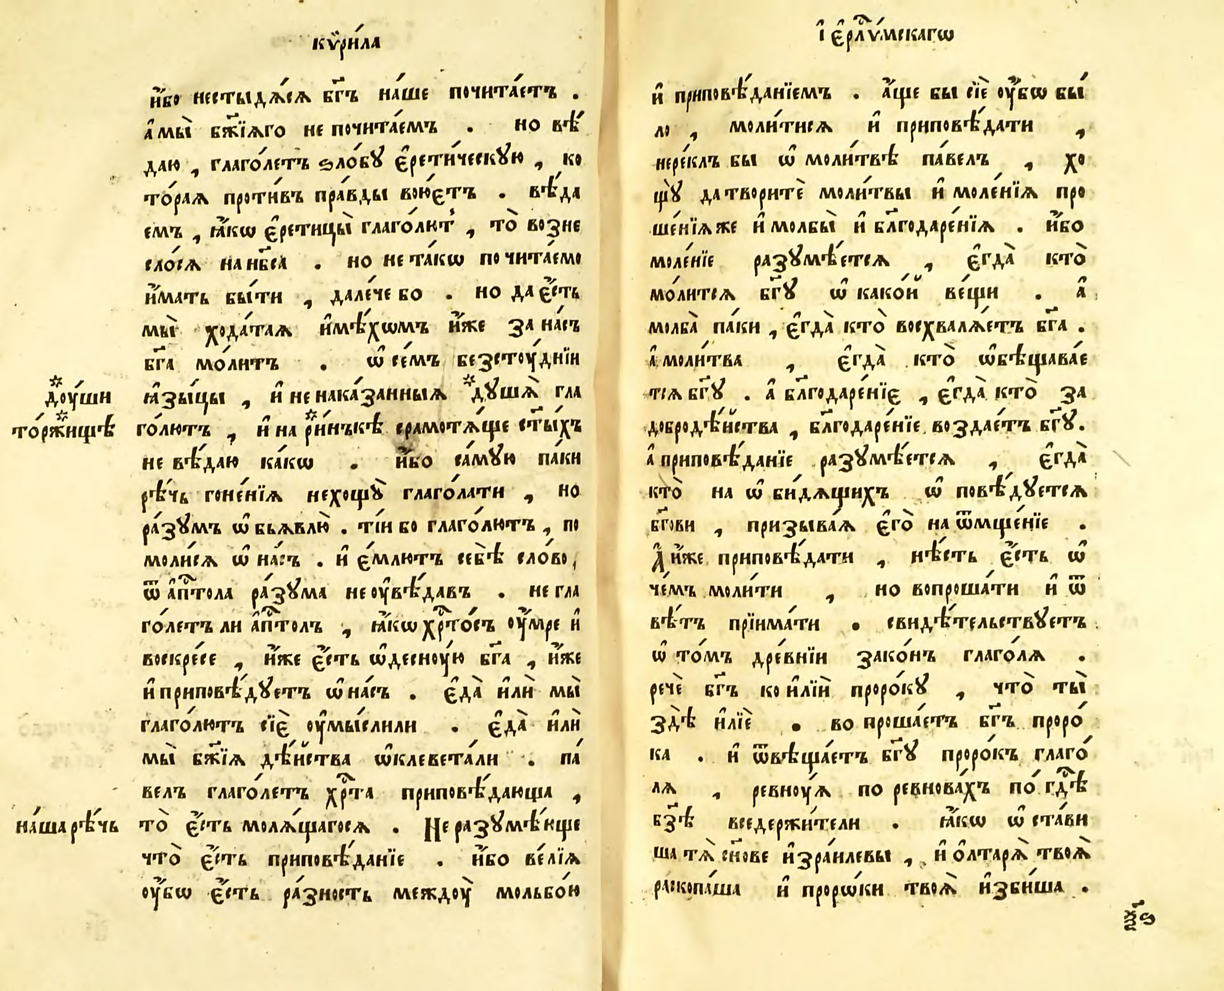 кѷри́ла
и҆́бо нестыдѧ́сѧ бг҃ъ на́ше почита́етъ .
а҆ мы̀ бж҃їѧго не почита́емъ . но вѣ́
даю , глаго́летъ ѕло́бꙋ є҆рети́ческꙋю , ко
то́раѧ проти́въ пра́вды вою́етъ . вѣ́да
емъ , ꙗ҆́кѡ є҆ретицы̀ глаго́лют̾ , то̀ возне
сло́сѧ на нб҃са̀ . но не та́кѡ почита́емо
и҆́мать бы́ти , дале́че бо . но да є҆́сть
мы̀ хода́таѧ и҆мѣ́хѡмъ и҆́же за на́съ
бг҃а мо́лит . ѡ҆ се́мъ безстоу́днїи
*
доу́ши ꙗ҆зы́цы , и҆ не нака́занныѧ *дꙋшѧ̀ гла
*
то́ржищѣ го́лютъ , и҆ на *ри́нъкѣ срамотѧ́ще ст҃ы́хъ
не вѣ́даю ка́кѡ . и҆́бо са́мꙋю па́ки
рѣ́чь гоне́нїѧ нехощꙋ̀ глаго́лати , но
ра́зꙋмъ ѡ҆бьѧвлю̀ . ті́и бо глаго́лютъ , по
моли́сѧ ѡ҆ на́съ . и҆ є҆́млютъ себѣ̀ сло́во ,
ѿ а҆пⷭ҇тола ра́зꙋма не оу҆вѣ́давъ . не гла
го́летъ ли а҆пⷭ҇толъ , ꙗ҆́кѡ хрⷭ҇то́съ оу҆́мре и҆
воскре́се , и҆́же є҆́сть ѡ҆десноу́ю бг҃а , и҆́же
и҆ приповѣ́дꙋетъ ѡ҆ на́съ . є҆да̀ и҆лѝ мы̀
глаго́лютъ сїѐ оу҆мы́слили . є҆да̀ и҆лѝ
мы̀ бж҃їѧ дѣ́йства ѡ҆клевета́ли . па́
велъ глаго́летъ хрⷭ҇та приповѣ́дающа ,
на́ша рѣ́чь то̀ є҆́сть молѧ́щагосѧ . Не разꙋмѣ́юще
что̀ є҆́сть приповѣ́данїе . и҆́бо ве́лїѧ
оу҆́бѡ є҆́сть ра́зность междоу̀ мольбо́ю
і҆ є҆рлⷭ҇ѵ́мскагѡ
и҆ приповѣ́данїемъ . а҆́ще бы сїѐ оу҆́бѡ бы́
ло , моли́тисѧ и҆ приповѣ́дати ,
нере́клъ бы ѡ҆ моли́твѣ па́велъ , хо
щꙋ̀ да творитѐ моли́твы и҆ моле́нїѧ про
ше́нїѧже и҆ молбы̀ и҆ блг҃одаре́нїѧ . и҆́бо
моле́нїе разꙋмѣ́етсѧ , є҆гда̀ кто̀
мо́литсѧ бг҃ꙋ ѡ҆ како́й ве́щи . а҆
молба̀ па́ки , є҆гда̀ кто̀ восхвалѧ́етъ бг҃а .
а҆ моли́тва , є҆гда̀ кто̀ ѡ҆бѣщава́е
тсѧ бг҃ꙋ . а҆ блг҃одаре́нїе , є҆гда̀ кто̀ за
добродѣ́йства , блг҃одаре́нїе воздае́тъ бг҃ꙋ .
а҆ приповѣ́данїе разꙋмѣ́етсѧ , є҆гда̀
кто̀ на ѡ҆би́дѧщихъ ѡ҆повѣ́дꙋетсѧ
бг҃ови , призыва́ѧ є҆го̀ на ѿмще́нїе .
А҆ и҆́же приповѣ́дати , нѣ́сть є҆́сть ѡ҆
че́мъ моли́ти , но вопроша́ти и҆ ѿ
вѣ́тъ прїима́ти . свидѣ́тельствꙋетъ
ѡ҆ то́мъ дре́внїи зако́нъ глаго́лѧ .
речѐ бг҃ъ ко и҆лїѝ проро́кꙋ , что̀ ты̀
здѣ̀ и҆лїѐ . вопроша́етъ бг҃ъ проро́
ка . и҆ ѿвѣща́етъ бг҃ꙋ проро́къ глаго́
лѧ , ревноу́ѧ поревнова́хъ по гдⷭ҇ѣ
бз҃ѣ вседержи́тели . ꙗ҆́кѡ ѡ҆ста́ви
ша тѧ̀ сн҃ове и҆зра́илевы , и҆ о҆лтарѧ̀ твоѧ̀
раскопа́ша и҆ проро́ки твоѧ̀ и҆зби́ша .